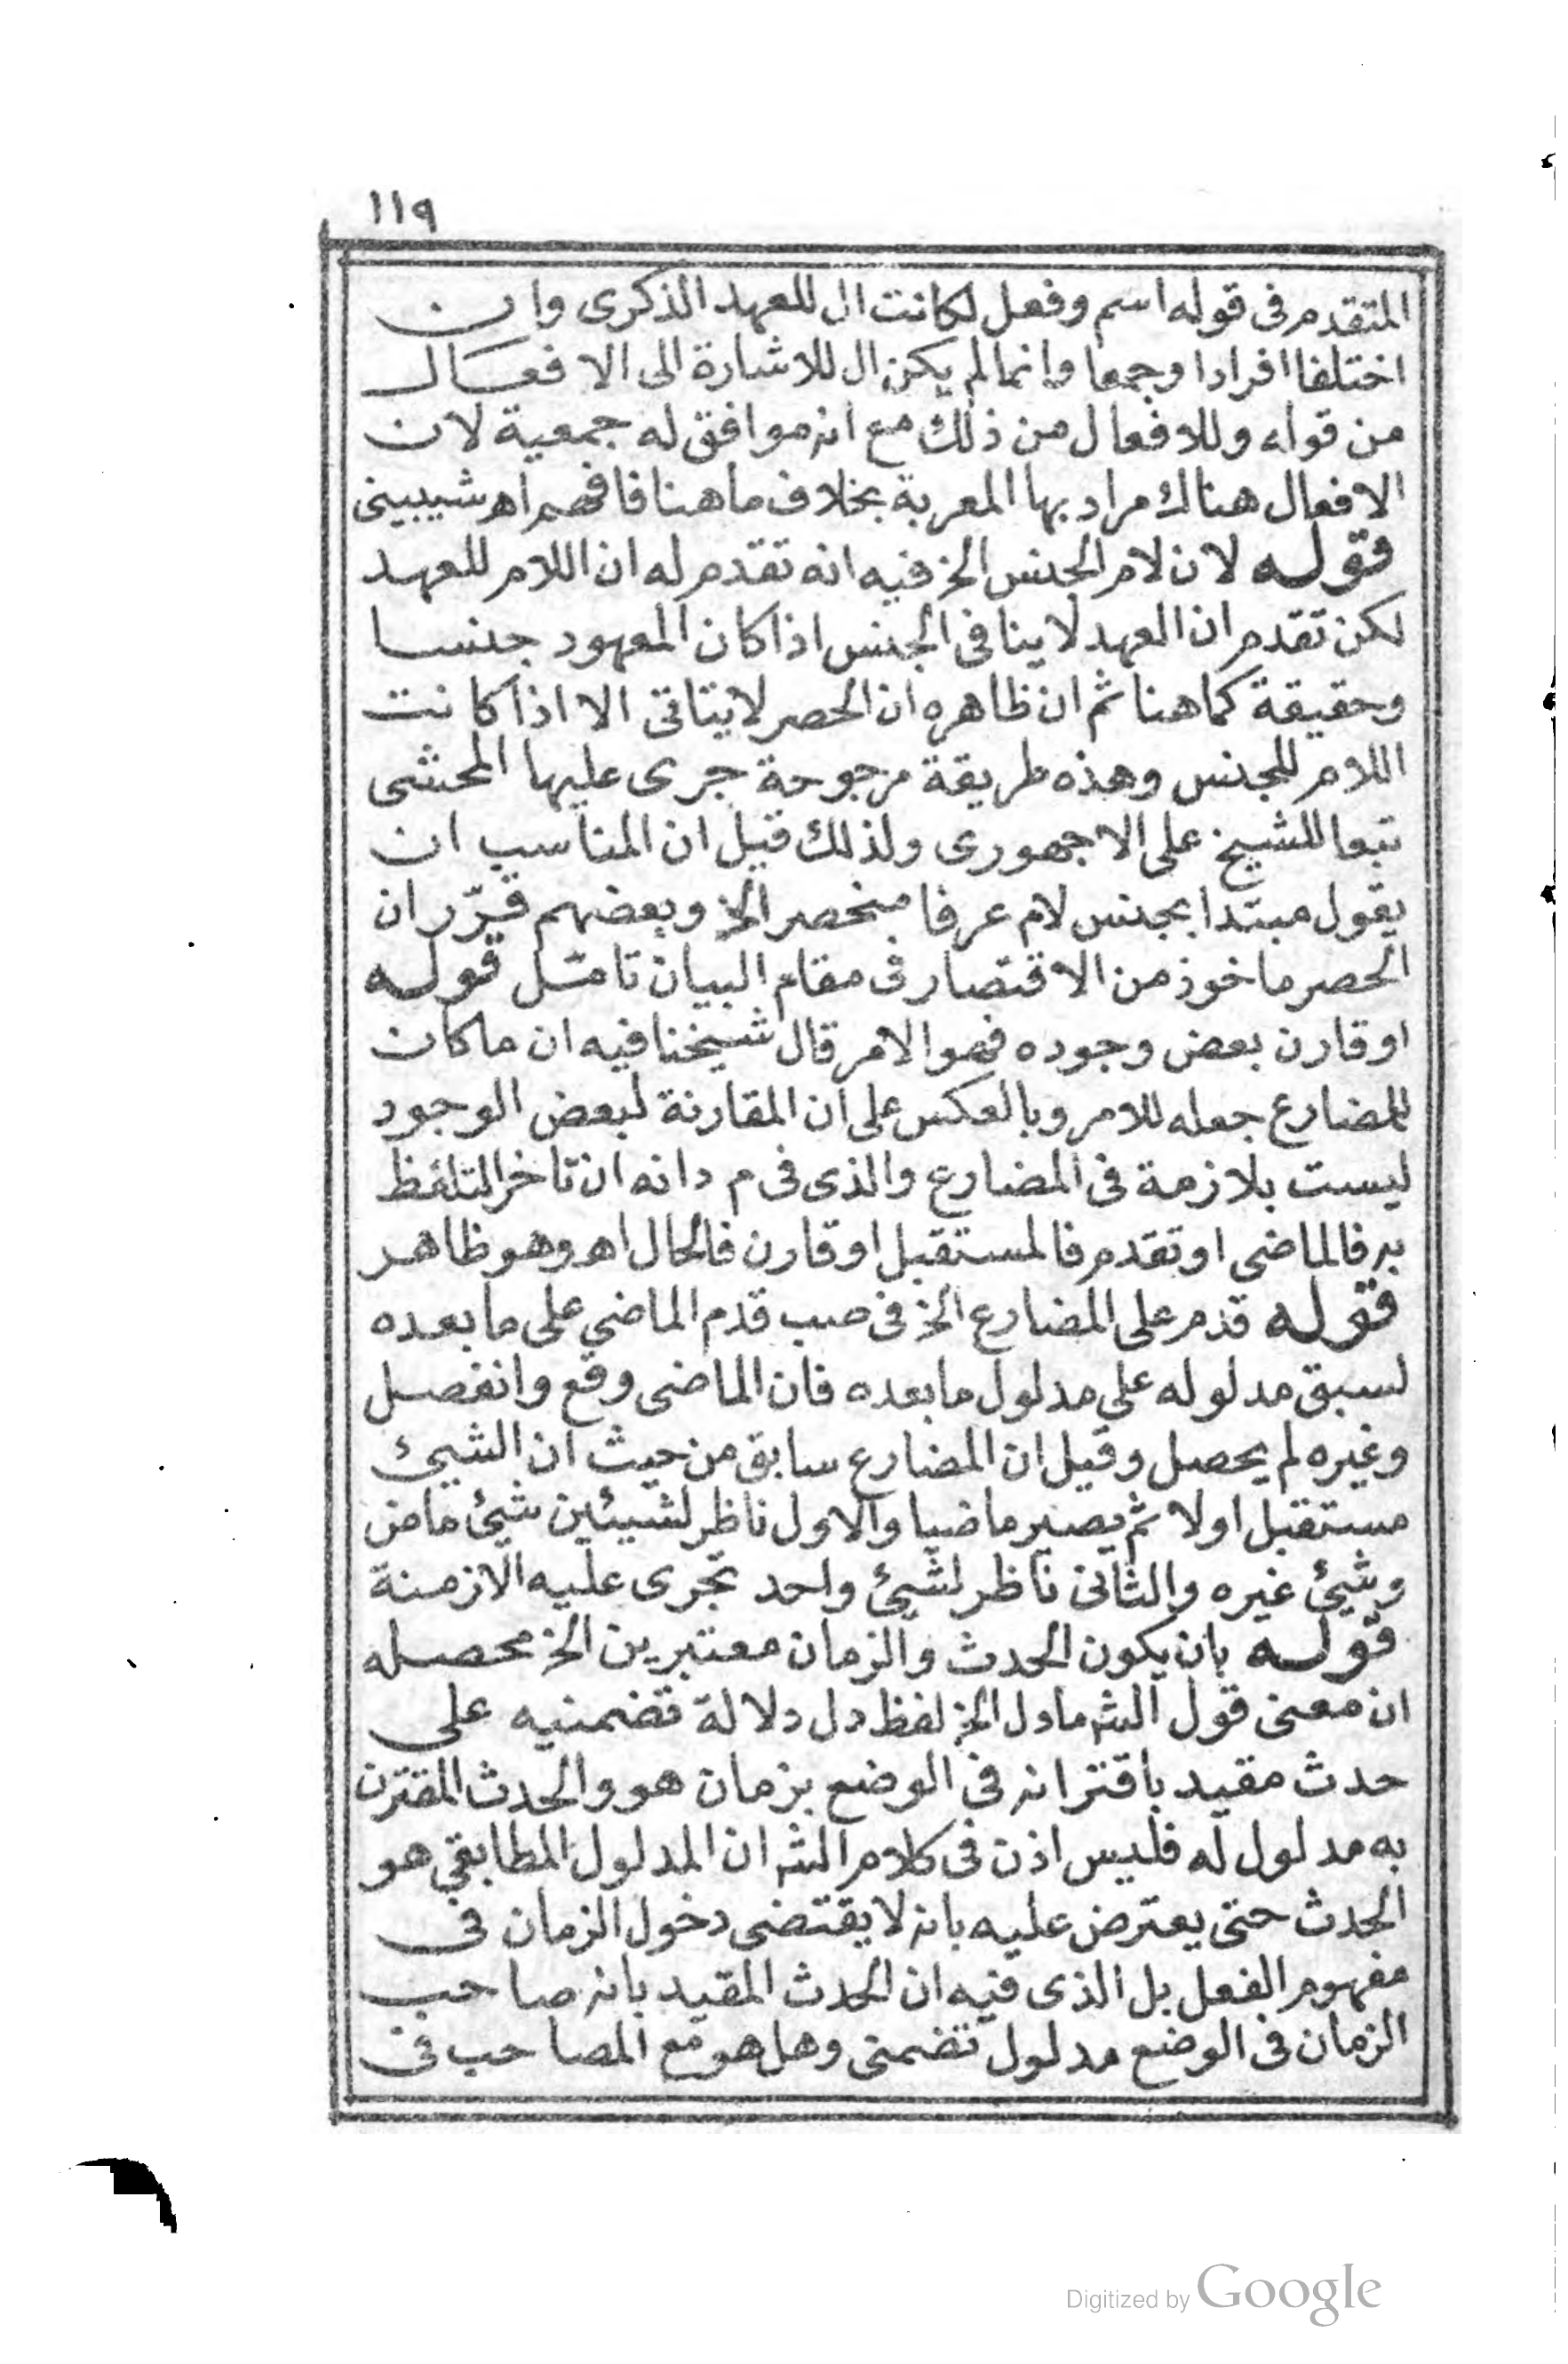 ١١٩
المتقدم فى قوله اسم وفعل لكانت ال للعهد الذكرى وان
اختلفا افرادا وجمعا وانما لم يكن ال للاشارة الى الافعال
من قوله وللافعال من ذلك مع انه موافق له جمعية لان
الافعال هناك مراد بها المعربة بخلاف ما هنا فافهم اهـ شيبينى
قوله لان لام الجنس الخ فيه انه تقدم له ان اللام للعهد
لكن تقدم ان العهد لا ينافى الجنس اذا كان المعهود جنسا
وحقيقة كما هنا ثم ان ظاهره ان الحصر لا يتاتى الا اذا كانت
اللام للجنس وهذه طريقة مرجوحة جرى عليها المحشى
تبعا للشيخ على الاجهورى ولذلك قيل ان المناسب ان
يقول مبتدا بجنس لام عرفا منحصر الخ وبعضهم قرّر ان
الحصر ماخوذ من الاقتصار فى مقام البيان تامّل قوله
او قارن بعض وجوده فهو الامر قال شيخنا فيه ان ما كان
للمضارع جعله للامر وبالعكس على ان المقارنة لبعض الوجود
ليست بلازمة فى المضارع والذى فى م د انه ان تاخر التلفظ
به فالماضى او تقدم فالمستقبل او قارن فالحال اهـ وهو ظاهر
قوله قدم على المضارع الخ فى صب قدم الماضي على ما بعده
لسبق مدلوله على مدلول ما بعده فان الماضى وقع وانفصل
وغيره لم يحصل وقيل ان المضارع سابق من حيث ان الشيئ
مستقبل اولا ثم يصير ماضيا والاول ناظر لشيئين شيئ ماض
وشيئ غيره والثانى ناظر لشيئ واحد تجرى عليه الازمنة
قوله بان يكون الحدث والزمان معتبرين الخ محصله
ان معنى قول الشه ما دل الخ لفظ دل دلالة تضمنيه على
حدث مقيد باقترانه فى الوضع بزمان هو والحدث المقترن
به مدلول له فليس اذن فى كلام الشه ان المدلول المطابقي هو
الحدث حتى يعترض عليه بانه لا يقتضى دخول الزمان فى
مفهوم الفعل بل الذى فيه ان الحدث المقيد بانه صاحب
الزمان فى الوضع مدلول تضمنى وهل هو مع المصاحب فى
Digitized by Google